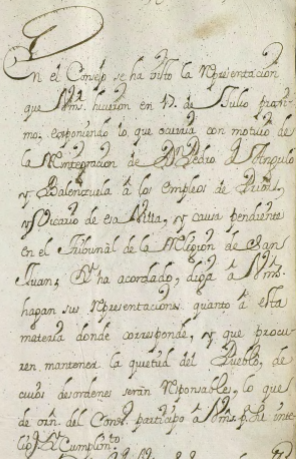 En el Consejo se ha visto la representacion
que Vms. hicieron en 17. de Julio proxi-
mo, exponiendo lo que ocurria con motivo de
la Reintegracion de Pedro Angulo
y Balenzuela â los empleos de Prior,
y Vicario de esa Villa, y causa pendiente
en el Tribunal de la Religion de San
Juan; Y ha acordado, diga â Vms.
hagan sus representaciones quanto â esta
materia donde corresponde, y que procu-
ren mantener la quietud del Pueblo, de
cuios desordenes serân responsables, lo que
de orn. del Consº. participo â Vms. pª. su inte-
lig.ª y Cumplim.to